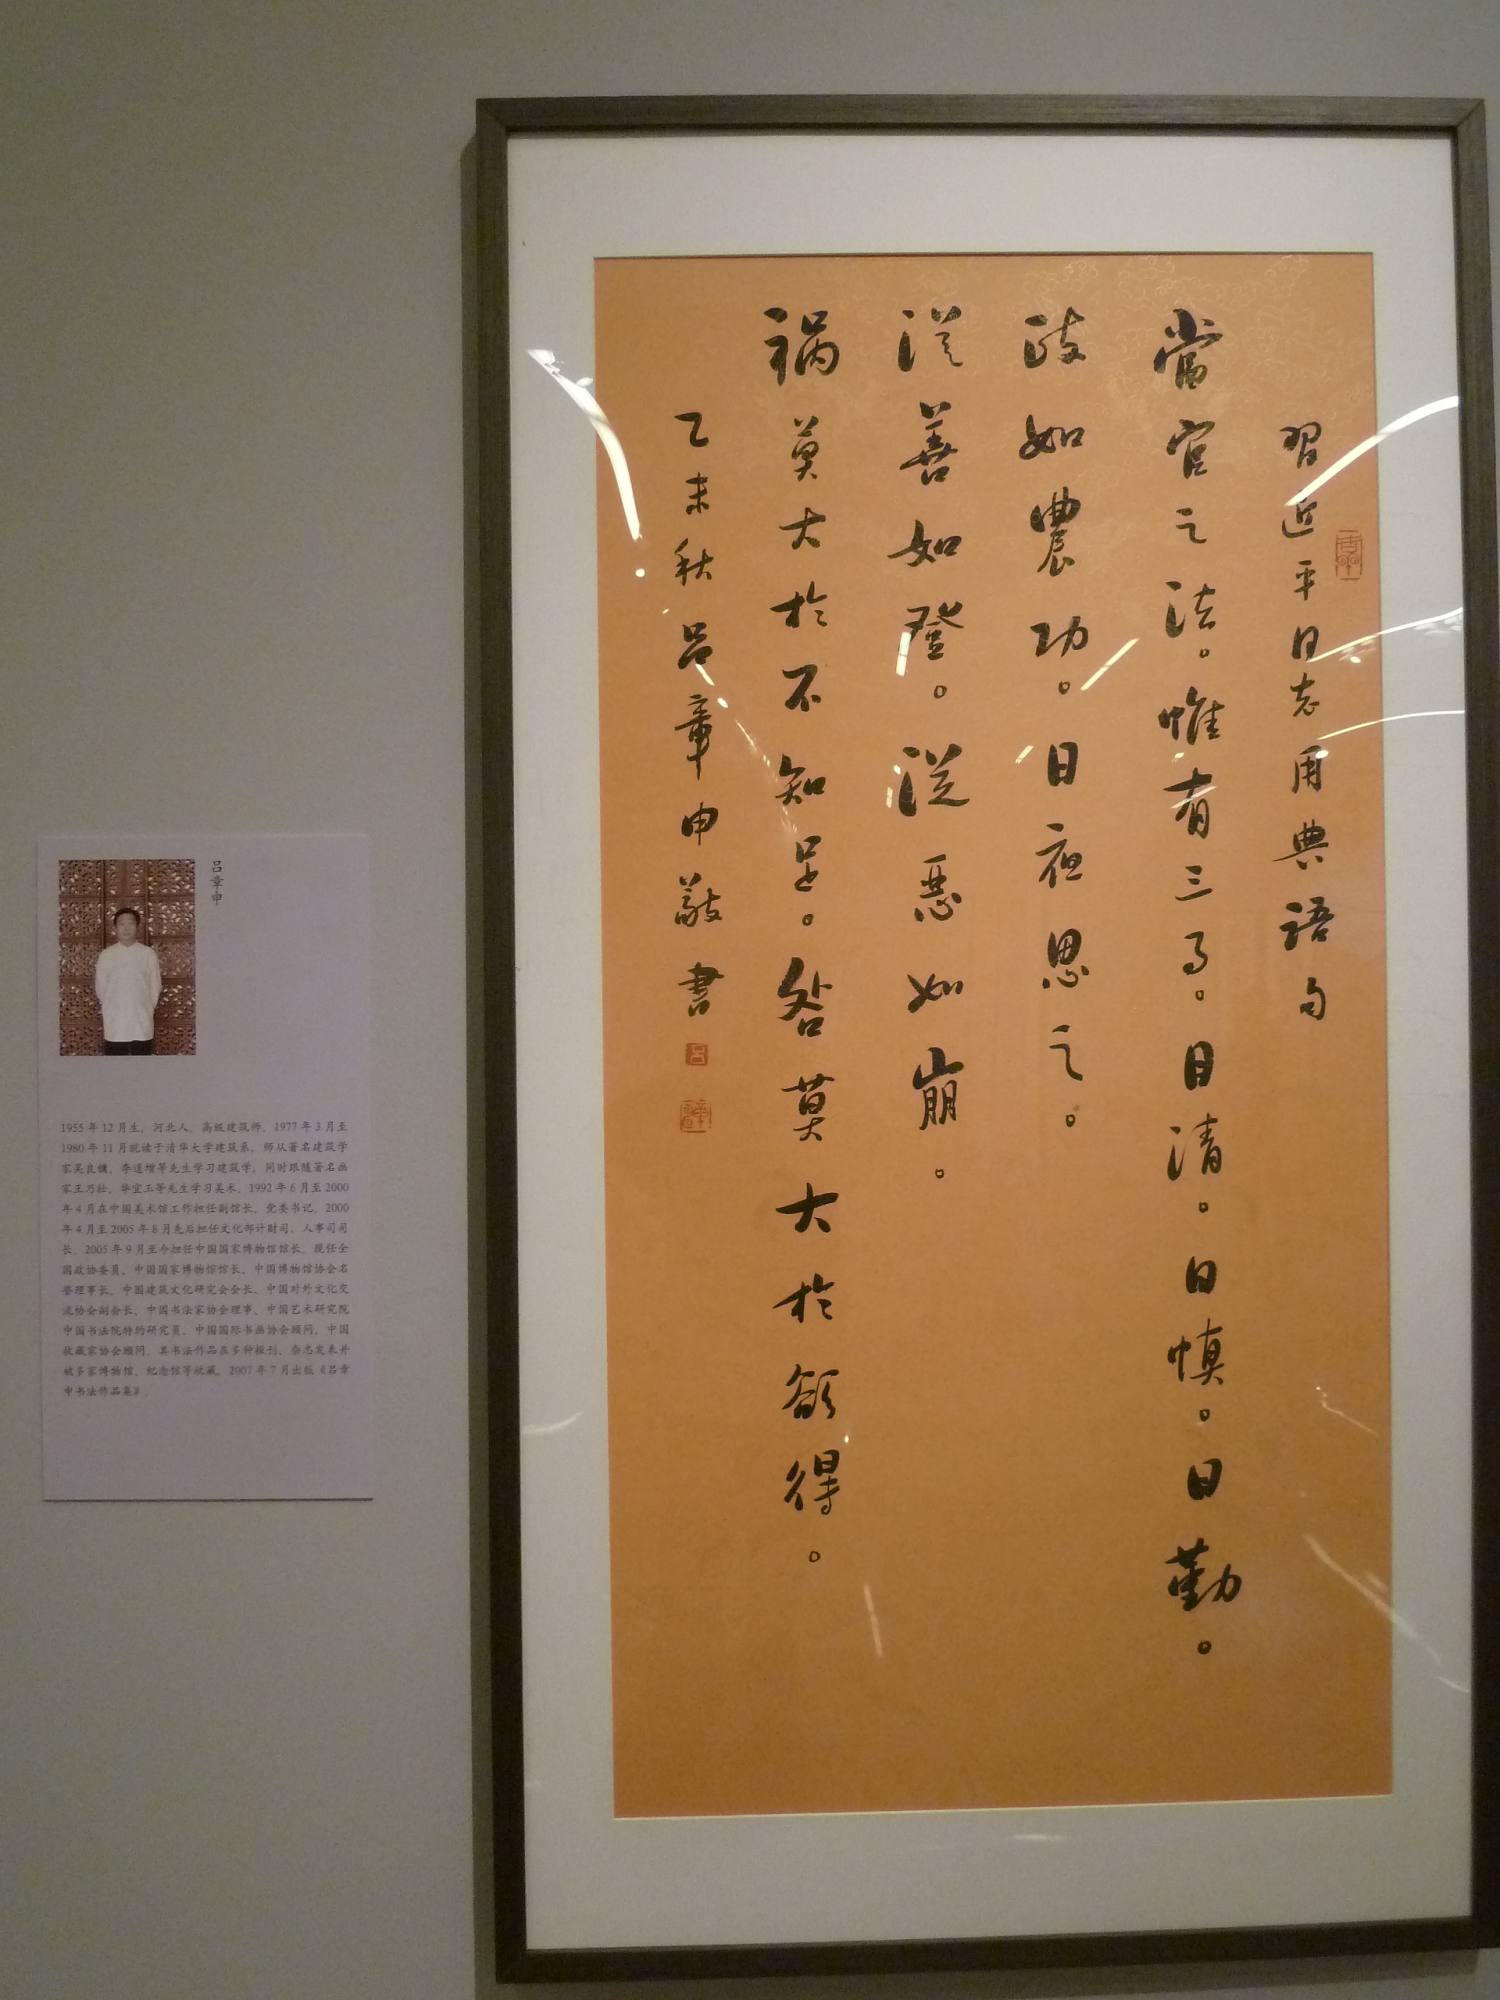 習近平同志用典語句
當官之法。惟有三事。曰清。曰慎。曰勤。
政如農功。日夜思之。
從善如登。從惡如崩。
禍莫大於不知足。咎莫大於欲得。
乙未秋吕章申敬書
吕章申
1955年12月生，河北人，高级建筑师。1977年3月至
1980年11月就读于清华大学建筑系，师从著名建筑学
家吴良镛、李道增等先生学习建筑学，同时跟随著名画
家王乃壮、华宜玉等先生学习美术。1992年6月至2000
年4月在中国美术馆工作担任副馆长、党委书记。2000
年4月至2005年8月先后担任文化部计财司、人事司司
长。2005年9月至今担任中国国家博物馆馆长。现任全
国政协委员、中国国家博物馆馆长、中国博物馆协会名
誉理事长、中国建筑文化研究会会长、中国对外文化交
流协会副会长、中国书法家协会理事、中国艺术研究院
中国书法院特约研究员、中国国际书画协会顾问、中国
收藏家协会顾问。其书法作品在多种报刊、杂志发表并
被多家博物馆、纪念馆等收藏。2007年7月出版《吕章
申书法作品集》。